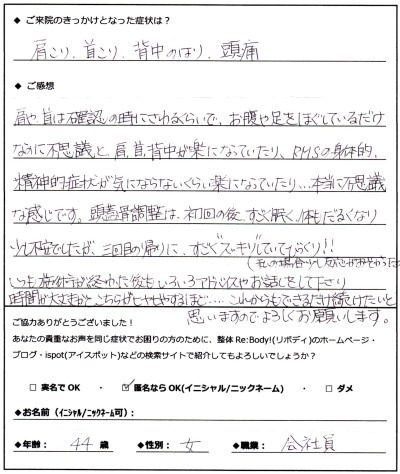 ◆ ご来院のきっかけとなった症状は？
肩こり、首こり、背中のはり、頭痛
◆ ご感想
肩や首は確認の時にさわるくらいで、お腹や足をほぐしているだけ
なのに不思議と、肩、首、背中が楽になっていたり、PMSの身体的、
精神的症状が気にならないくらい楽になっていたり…本当に不思議
な感じです。頭蓋骨調整は、初回の後、すごく眠く、体もだるくなり
少し不安でしたが、三回目の帰りに、すごくスッキリしていてびっくり!!
(私の場合少し反応がおそかった
いつも施術が終わった後もいろいろアドバイスやお話をして下さり
時間が大丈夫かとこちらがヒヤヒヤするほど…これからもできるだけ続けたいと
思いますのでよろしくお願いします。
ご協力ありがとうございました！
あなたの貴重なお声を同じ症状でお困りの方のために、整体 Re:Body!(リボディ)のホームページ・
ブログ・ispot(アイスポット)などの検索サイトで紹介してもよろしいでしょうか？
□ 実名でOK ・ ☑ 匿名ならOK(イニシャル/ニックネーム) ・ □ ダメ
◆お名前（イニシャル/ニックネーム可）：
◆年齢： 44 歳 ◆性別： 女 ◆職業： 会社員